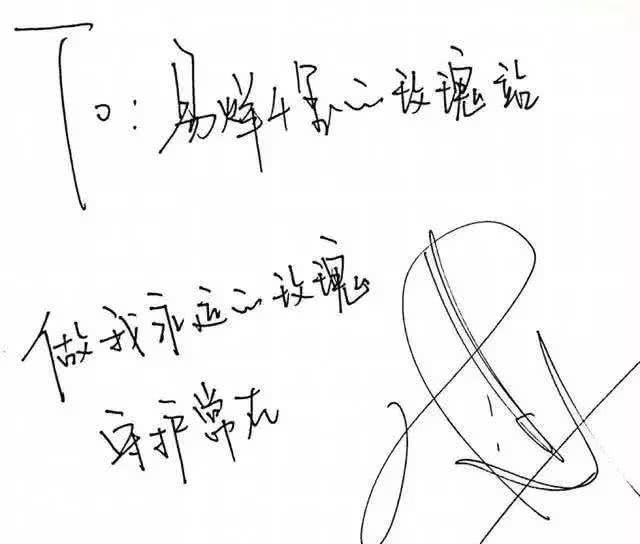 To:易烊千玺心玫瑰站
做我永远心玫瑰
守护常在